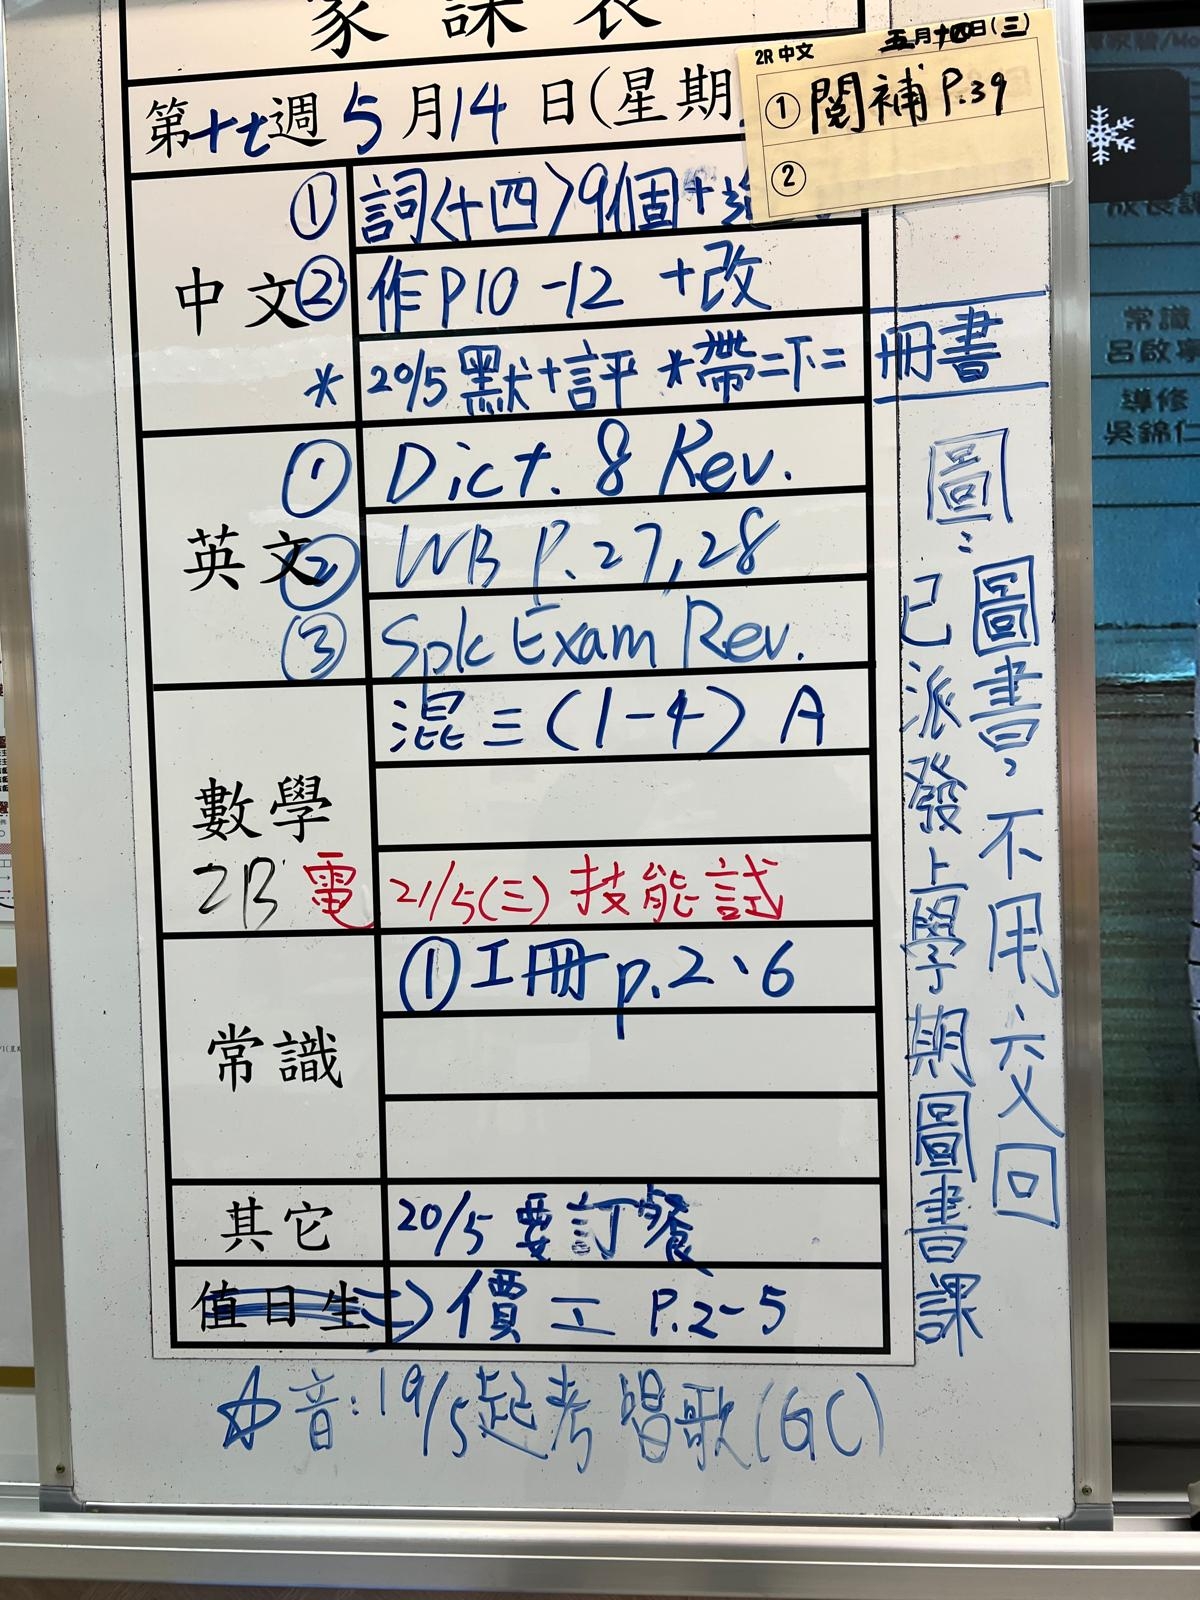 家課表
第十七週 5月14日(星期
2R 中文 五月十四日(三)
① 閱補 P.39
②
中文
① 詞〈十四〉9個+
② 作P10-12 +改
* 20/5 默+評 *帶二下二冊書
英文
① Dict. 8 Rev.
② WB P.27,28
③ Spk Exam Rev.
數學
混三(1-4) A
2B 電 21/5(三) 技能試
常識
① 工冊 p.2、6
其它
20/5 要訂餐
值日生 => 價工 P.2-5
☆音:19/5起考唱歌(GC)
圖:已派發上學期圖書課
圖書,不用交回
常識
呂啟寧
導修
吳錦仁